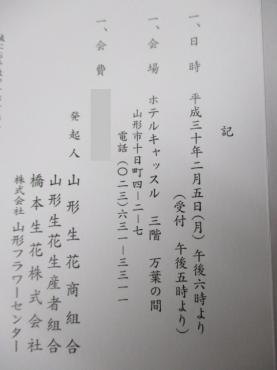 記
一、日 時 平成三十年二月五日(月) 午後六時より
(受付 午後五時より)
一、会 場 ホテルキャッスル 三階 万葉の間
山形市十日町四ー二ー七
電話(〇二三)六三一ー三三一一
一、会 費
発起人 山形生花商組合
山形生花生産者組合
橋本生花株式会社
株式会社 山形フラワーセンター